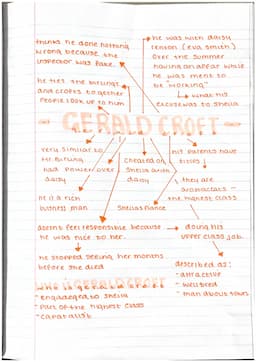 thinks he done nothing
wrong because the
inspector was fake.
he was with daisy
renton (eva smith)
over the summer
having an affair while
he was ment to
be working"
what his
excuse was to Sheila
he ties the birlings
and crofts together
People look up to him
- GERALD CROFT -
very similar to
Mr Birling
had power over
daisy
cheated on
Sheila with
daisy
his parents have
titles
they are
aristocrats -
the highest class
he is a rich
business man
Sheilas fiance
doesnt feel responsible because
he was nice to her.
doing his
upper class job.
he stopped seeing her months
before she died
described as:
- attractive
- well bred
- man about town
who is gerald croft
- engadged to sheila
- Part of the highest class
- capatalist